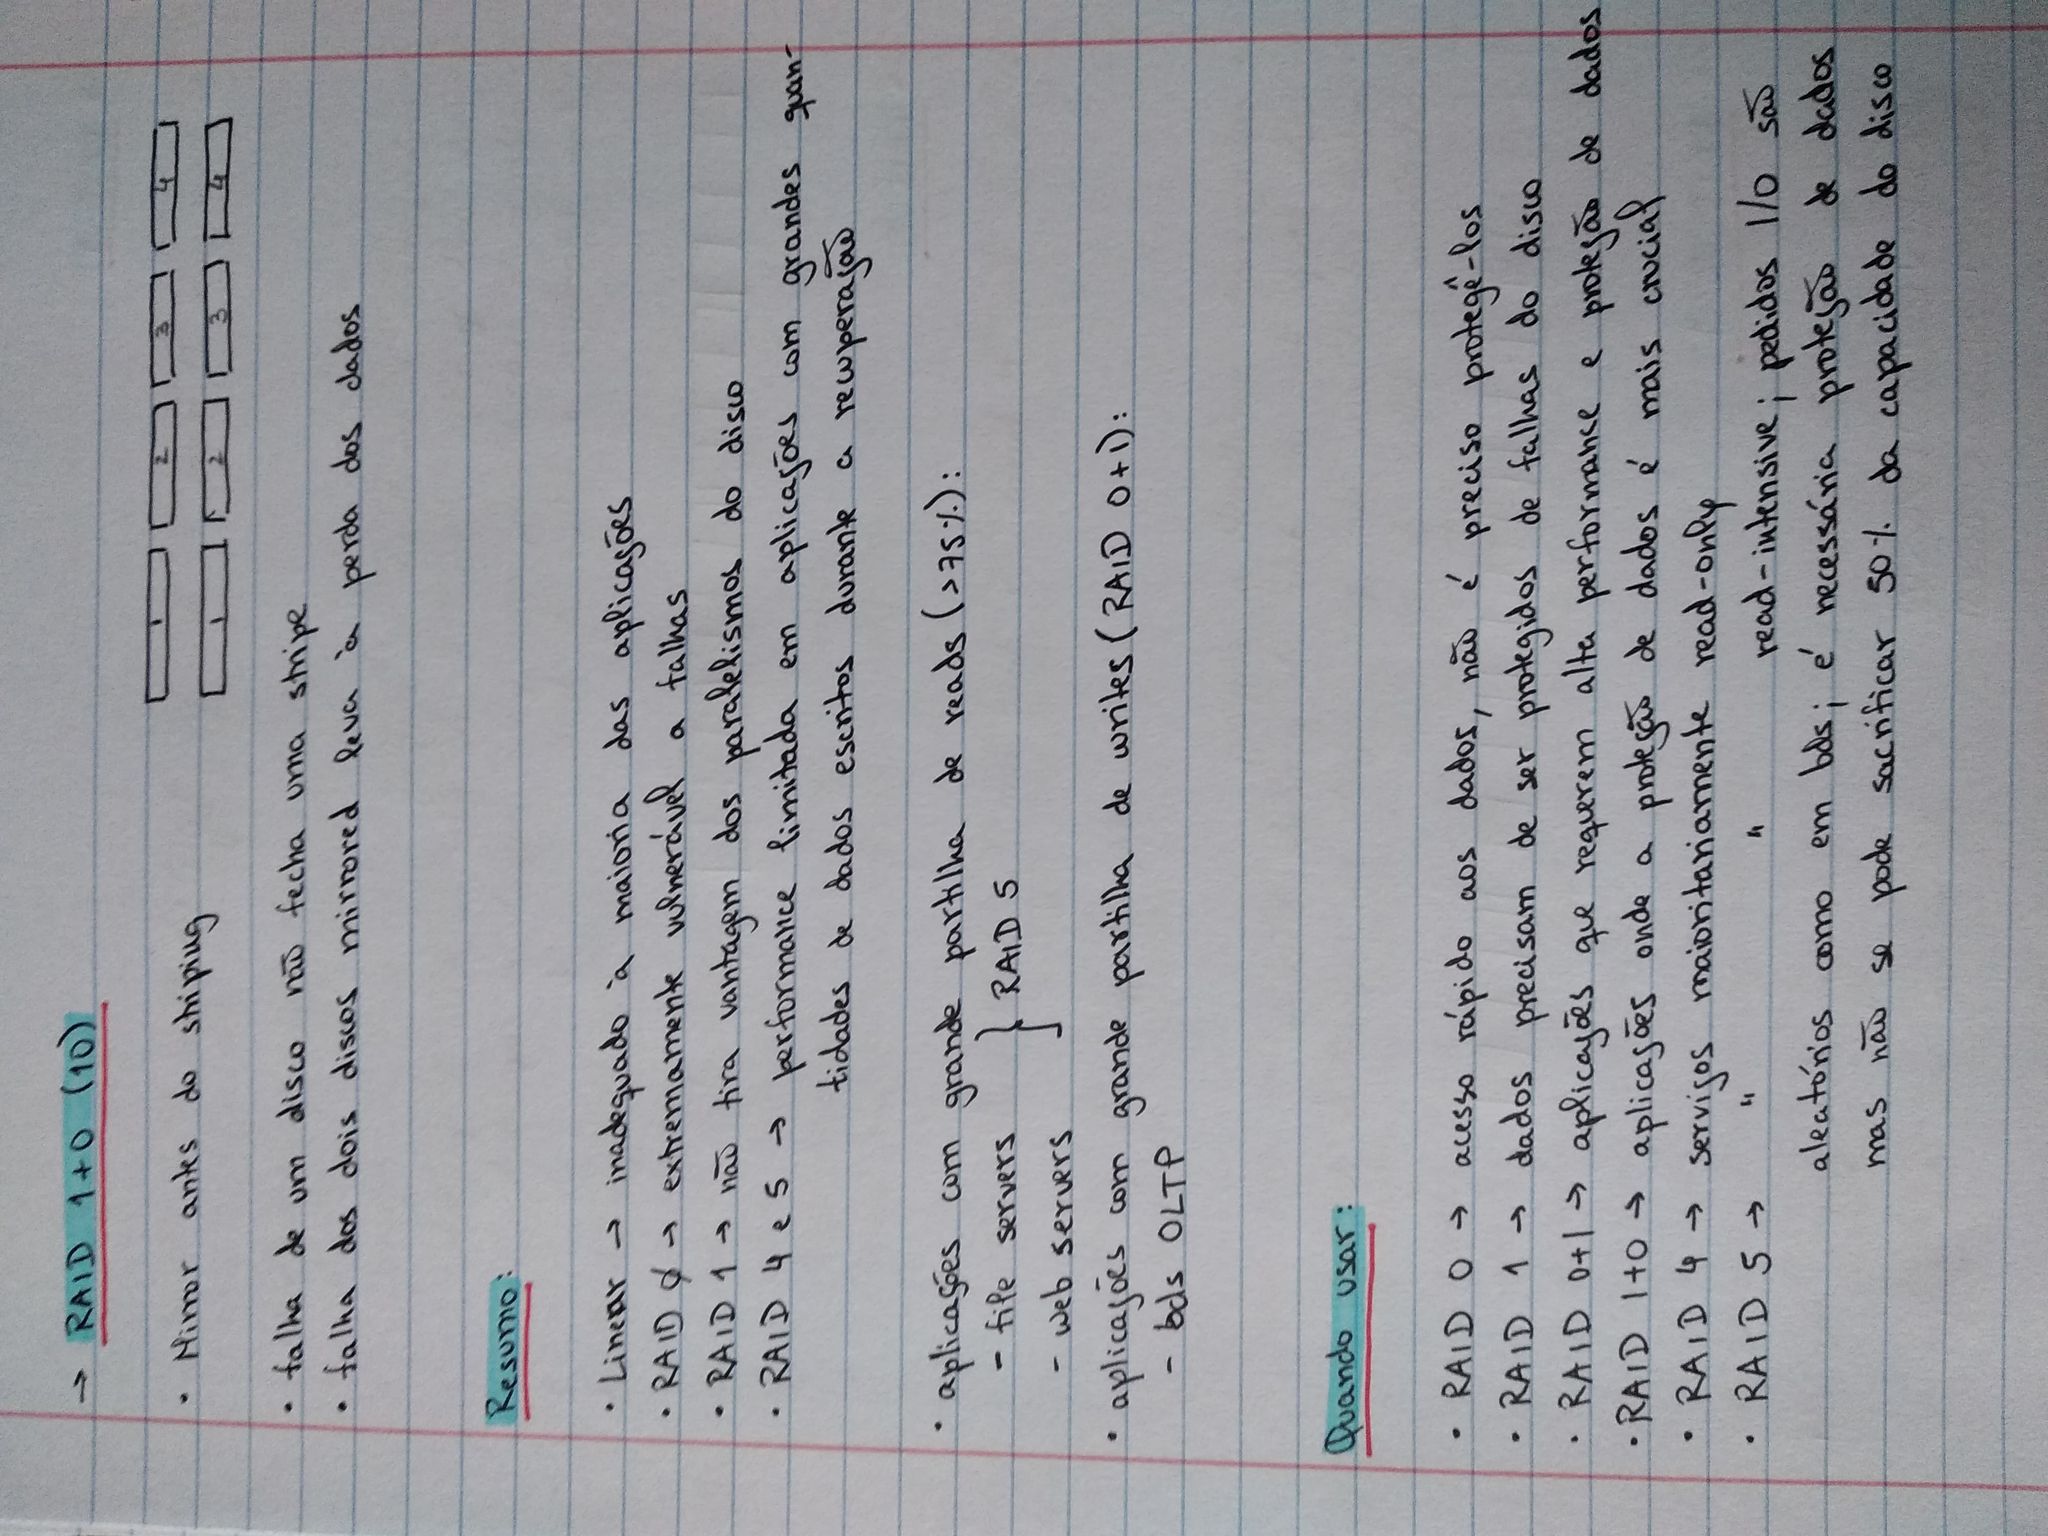 → RAID 1+0 (10)
1 2 3 4
• Mirror antes do striping
1 2 3 4
• falha de um disco não fecha uma stripe
• falha dos dois discos mirrored leva à perda dos dados
Resumo:
• Linear → inadequado à maioria das aplicações
• RAID 0 → extremamente vulnerável a falhas
• RAID 1 → não tira vantagem dos paralelismos do disco
• RAID 4 e 5 → performance limitada em aplicações com grandes quan-
tidades de dados escritos durante a recuperação
• aplicações com grande partilha de reads (>75%):
- file servers } RAID 5
- web servers
• aplicações com grande partilha de writes (RAID 0+1):
- bds OLTP
Quando usar:
• RAID 0 → acesso rápido aos dados, não é preciso protegê-los
• RAID 1 → dados precisam de ser protegidos de falhas do disco
• RAID 0+1 → aplicações que requerem alta performance e proteção de dados
• RAID 1+0 → aplicações onde a proteção de dados é mais crucial
• RAID 4 → serviços maioritariamente read-only
• RAID 5 → " " read-intensive; pedidos I/O são
aleatórios como em bds; é necessária proteção de dados
mas não se pode sacrificar 50% da capacidade do disco